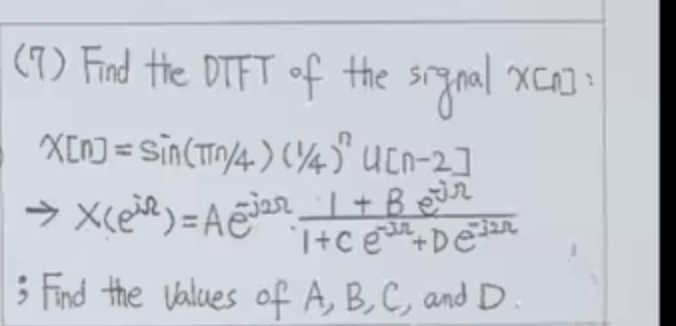 (7) Find the DTFT of the signal x[n]:
x[n] = sin(πn/4)(1/4)ⁿ u[n-2]
→ X(e^{jΩ}) = A e^{-j2Ω} · (1 + B e^{-jΩ}) / (1 + C e^{-jΩ} + D e^{-j2Ω})
; Find the values of A, B, C, and D.